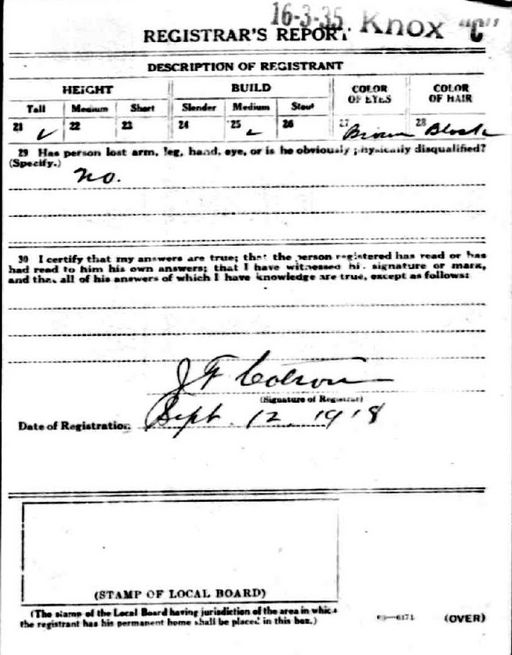 16-3-35. Knox "C"
REGISTRAR'S REPORT
DESCRIPTION OF REGISTRANT
HEIGHT BUILD COLOR OF EYES COLOR OF HAIR
Tall Medium Short Slender Medium Stout
21 ✓ 22 23 24 25 ✓ 26 27 Brown 28 Black
29 Has person lost arm, leg, hand, eye, or is he obviously physically disqualified?
(Specify.) no.
30 I certify that my answers are true; that the person registered has read or has
had read to him his own answers; that I have witnessed his signature or mark,
and that all of his answers of which I have knowledge are true, except as follows:
J F
(Signature of Registrar)
Date of Registration Sept. 12. 1918
(STAMP OF LOCAL BOARD)
(The stamp of the Local Board having jurisdiction of the area in which
the registrant has his permanent home shall be placed in this box.)
(OVER)